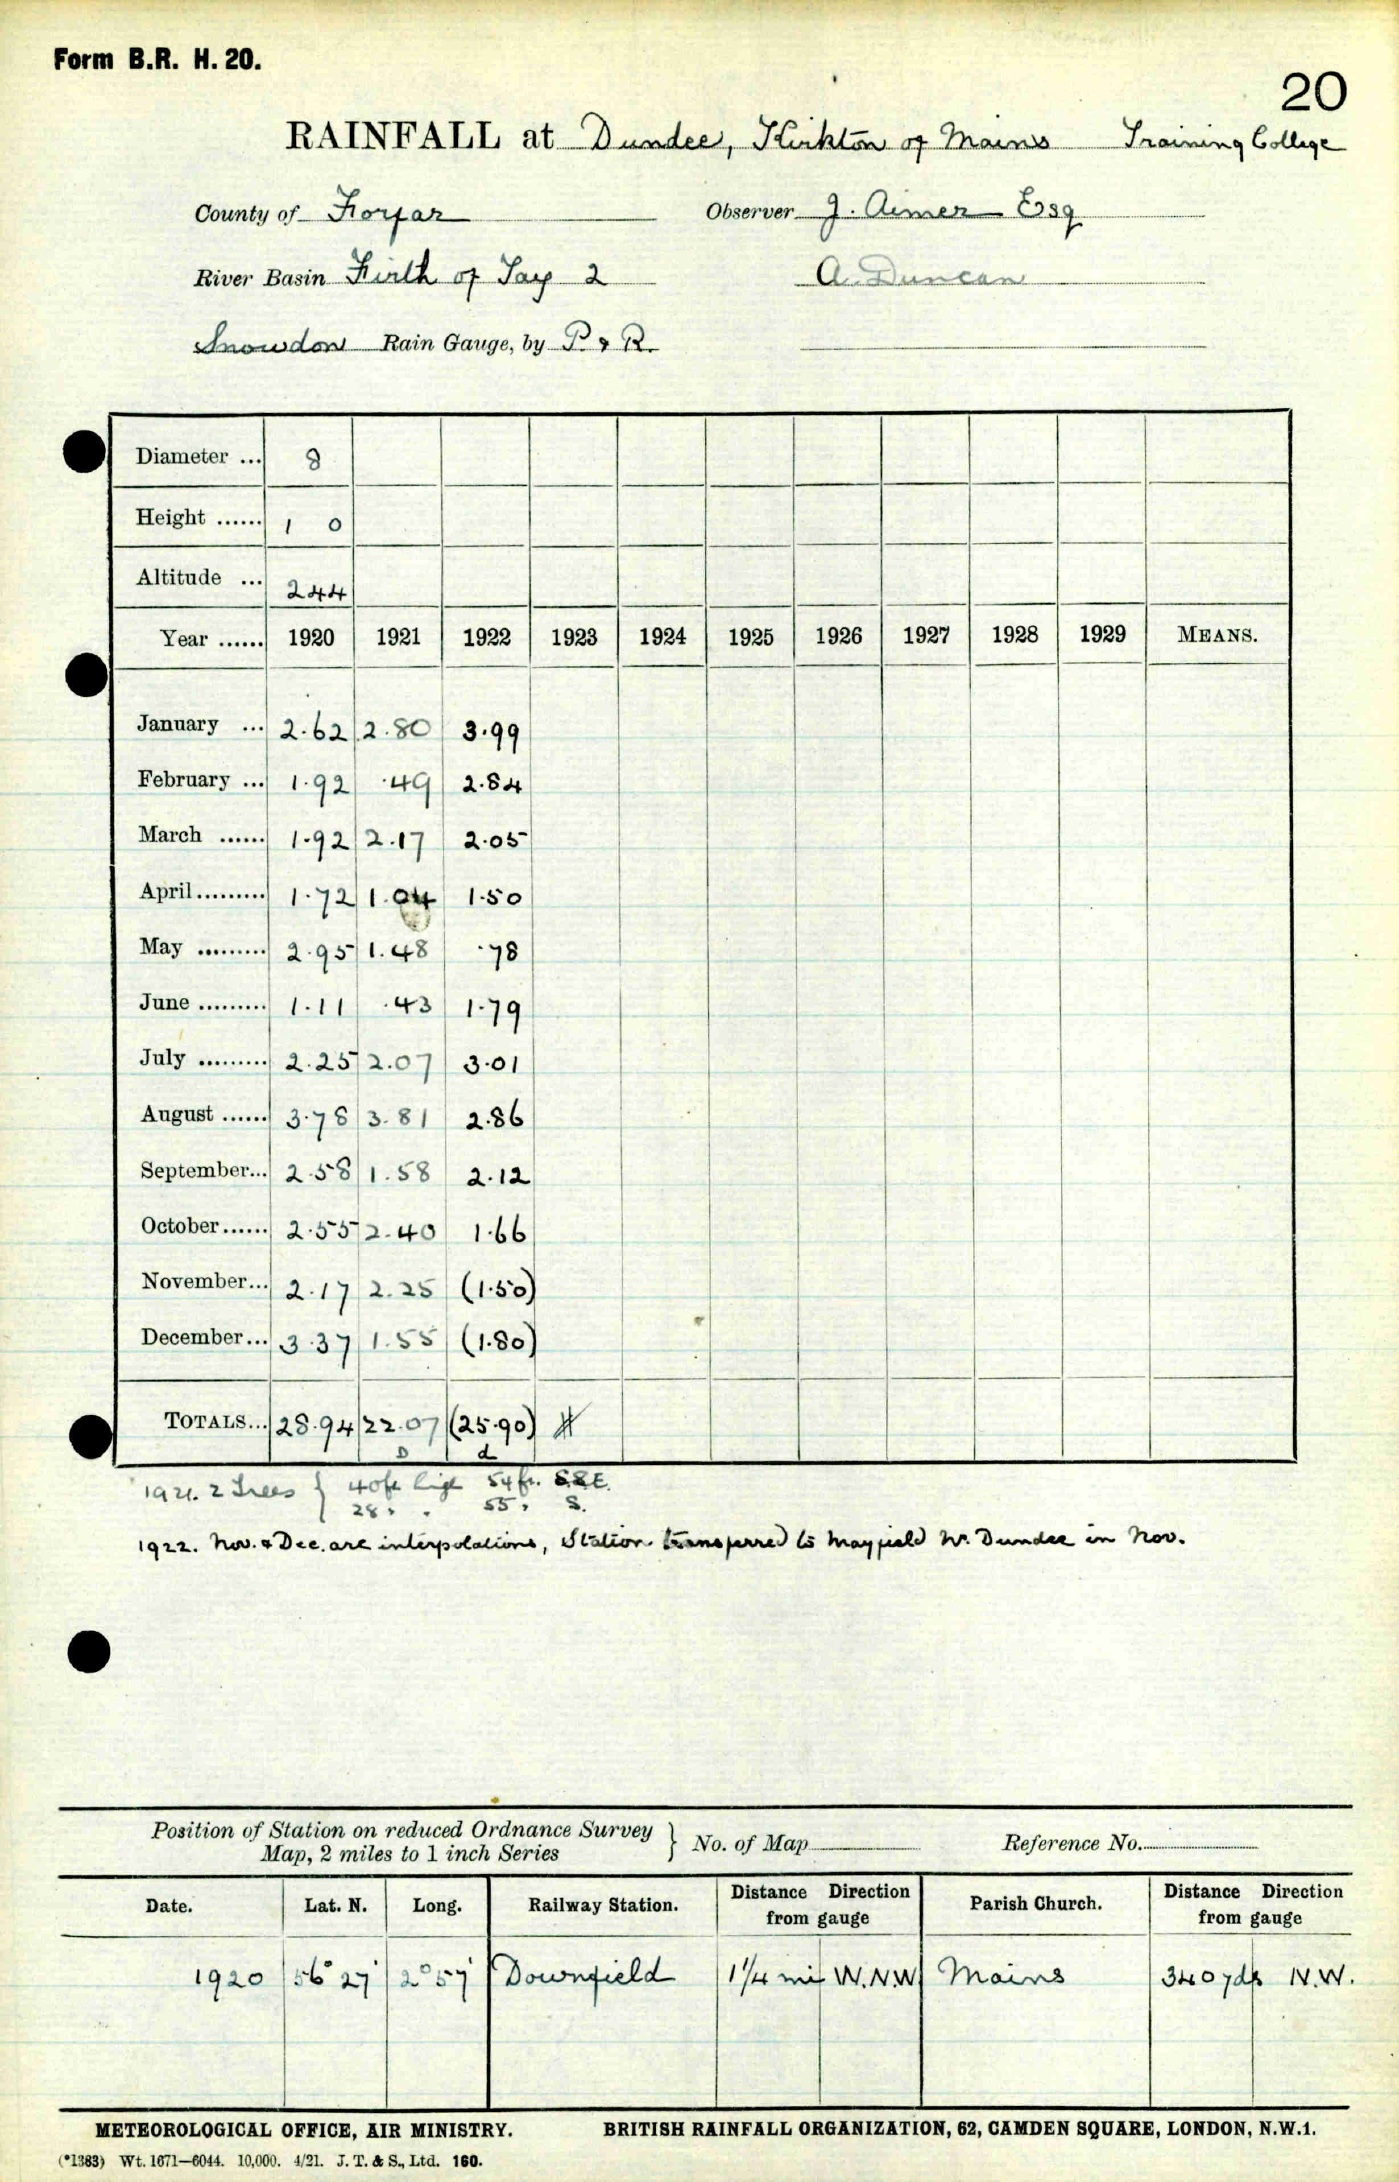 Form B.R. H. 20.
20
RAINFALL at Dundee, Kirkton of Mains Training College
County of Forfar Observer J. Aimer Esq
River Basin Firth of Tay 2 A. Duncan
Snowdon Rain Gauge, by P. & R.
Diameter ... 8
Height ...... 1 0
Altitude ... 244
Year ...... 1920 1921 1922 1923 1924 1925 1926 1927 1928 1929 MEANS.
January ... 2.62 2.80 3.99
February ... 1.92 .49 2.84
March ...... 1.92 2.17 2.05
April ......... 1.72 1.04 1.50
May ......... 2.95 1.48 .78
June ......... 1.11 .43 1.79
July ......... 2.25 2.07 3.01
August ...... 3.78 3.81 2.86
September... 2.58 1.58 2.12
October...... 2.55 2.40 1.66
November... 2.17 2.25 (1.50)
December... 3.37 1.55 (1.80)
TOTALS... 28.94 22.07 (25.90)
D d
1921. 2 Trees } 40 ft high 54 ft. S.S.E.
28 " " 55 " S.
1922. Nov. & Dec. are interpolations, Station transferred to Mayfield Nr. Dundee in Nov.
Position of Station on reduced Ordnance Survey
Map, 2 miles to 1 inch Series } No. of Map Reference No.
Date. Lat. N. Long. Railway Station. Distance Direction from gauge Parish Church. Distance Direction from gauge
1920 56° 27' 2° 57' Downfield 1 1/4 mi W.N.W Mains 340 yds N.W.
METEOROLOGICAL OFFICE, AIR MINISTRY. BRITISH RAINFALL ORGANIZATION, 62, CAMDEN SQUARE, LONDON, N.W.1.
(*1383) Wt. 1671—6044. 10,000. 4/21. J. T. & S., Ltd. 160.